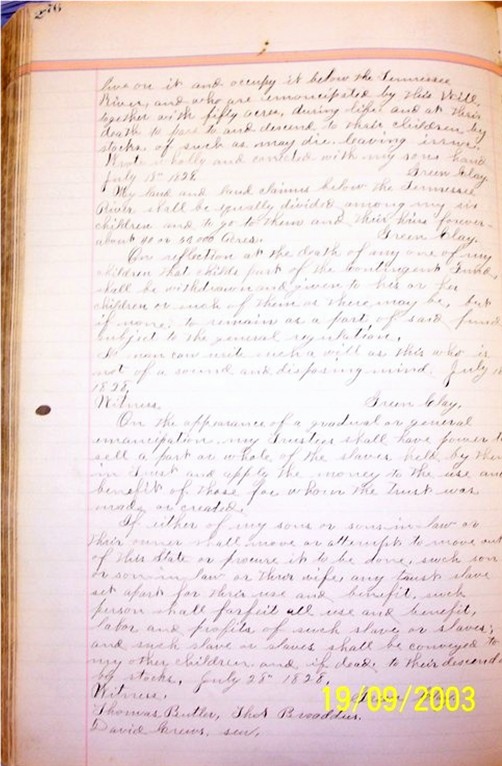 276
live on it and occupy it below the Tennessee
River, and who are emancipated by this Will,
together with fifty acres, during life and at their
death to pass to and descend to their children by
stocks of such as may die leaving issue.
Wrote wholly and corrected with my sons hand
July 15th 1828. Green Clay.
My land and land claims below the Tennessee
River shall be equally divided among my six
children and to go to them and their heirs forever.
about 40 or 50 000 acres. Green Clay.
On reflection at the death of any one of my
children that childs part of the contingent Fund,
shall be withdrawn and given to his or her
children or such of them as there may be, but
if none, to remain as a part of said fund
subject to the general regulation.
A man can write such a will as this who is
not of a sound and disposing mind. July
1828.
Witness. Green Clay.
On the appearance of a gradual or general
emancipation my Trustees shall have power to
sell a part or whole of the slaves held by them
in Trust and apply the money to the use and
benefit of those for whom the trust was
made or created.
If either of my sons or sons in law or
their owner shall move or attempt to move out
of this State or procure it to be done, such son
or son in law or their wife, any trust slave
set apart for their use and benefit, such
person shall forfeit all use and benefit,
labor and profits of such slave or slaves;
and such slave or slaves shall be conveyed to
my other children and if dead to their descend
by stocks. July 28th 1828.
Witness.
Thomas Butler, Thos Broaddus.
David Crews, sen.
19/09/2003